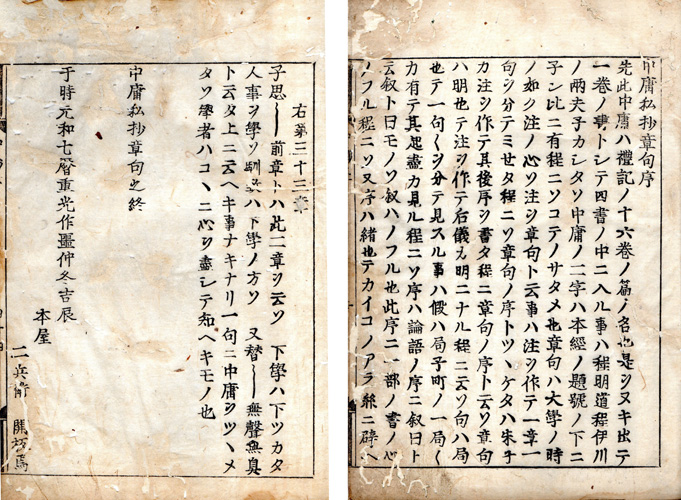 中庸私抄章句序
先此中庸ハ禮記ノ十六卷ノ篇ノ名也是ヲヌキ出テ
一卷ノ書トシテ四書ノ中ニ入ル事ハ程明道程伊川
ノ兩夫子カシタソ中庸ノ二字ハ本經ノ題號ノ下ニ
子シ比ニ有程ニソコテノサタメ也章句ハ大學ノ時
ノ如シ注ノ心ソ注ヲ章句ト云事ハ注ヲ作テ一章一
句ヲ分テミセタ程ニソ章句ノ序トツヽケタハ朱子
カ注ヲ作テ其後序ヲ書タ程ニ章句ノ序ト云ソ章句
ハ明也テ注ヲ作テ后儀カ明ニナル程ニ云ソ句ハ局
也テ一句〱ヲ分テ見スル事ハ假ハ局子町ノ一局〱
カ有テ其起盡カ見ル程ニソ序ハ論語ノ序ニ叙曰ト
云叙ト曰モノソ叙ハノフル也此序ニ一部ノ書ノ心
ノフル程ニソ又序ハ緒也テカイコノアラ絲ニ碎ヘ
右第三十三章
子思〱前章トハ此二章ヲ云ソ 下學ハ下ツカタ
人事ヲ學ソ馴致ハ下學ノ方ソ 又替〱無聲無臭
ト云タ上ニ云ヘキ事ナキナリ一句ニ中庸ヲツヽメ
タソ學者ハコヽニ心ヲ盡シテ知ヘキモノ也
中庸私抄章句之終
于時元和七曆重光作噩仲冬吉辰
本屋
二兵衛 開板焉